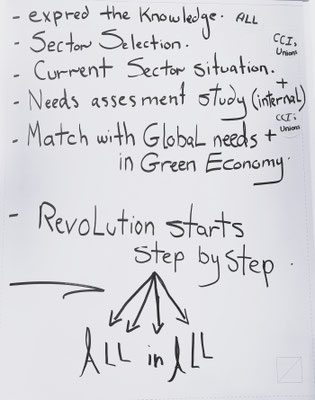 - expred the Knowledge. ALL
- Sector Selection.
CCI, Unions
- Current Sector situation.
+
- Needs assesment study (internal)
CCI, Unions
- Match with Global needs +
in Green Economy.
- Revolution starts
Step by Step.
ALL in ALL